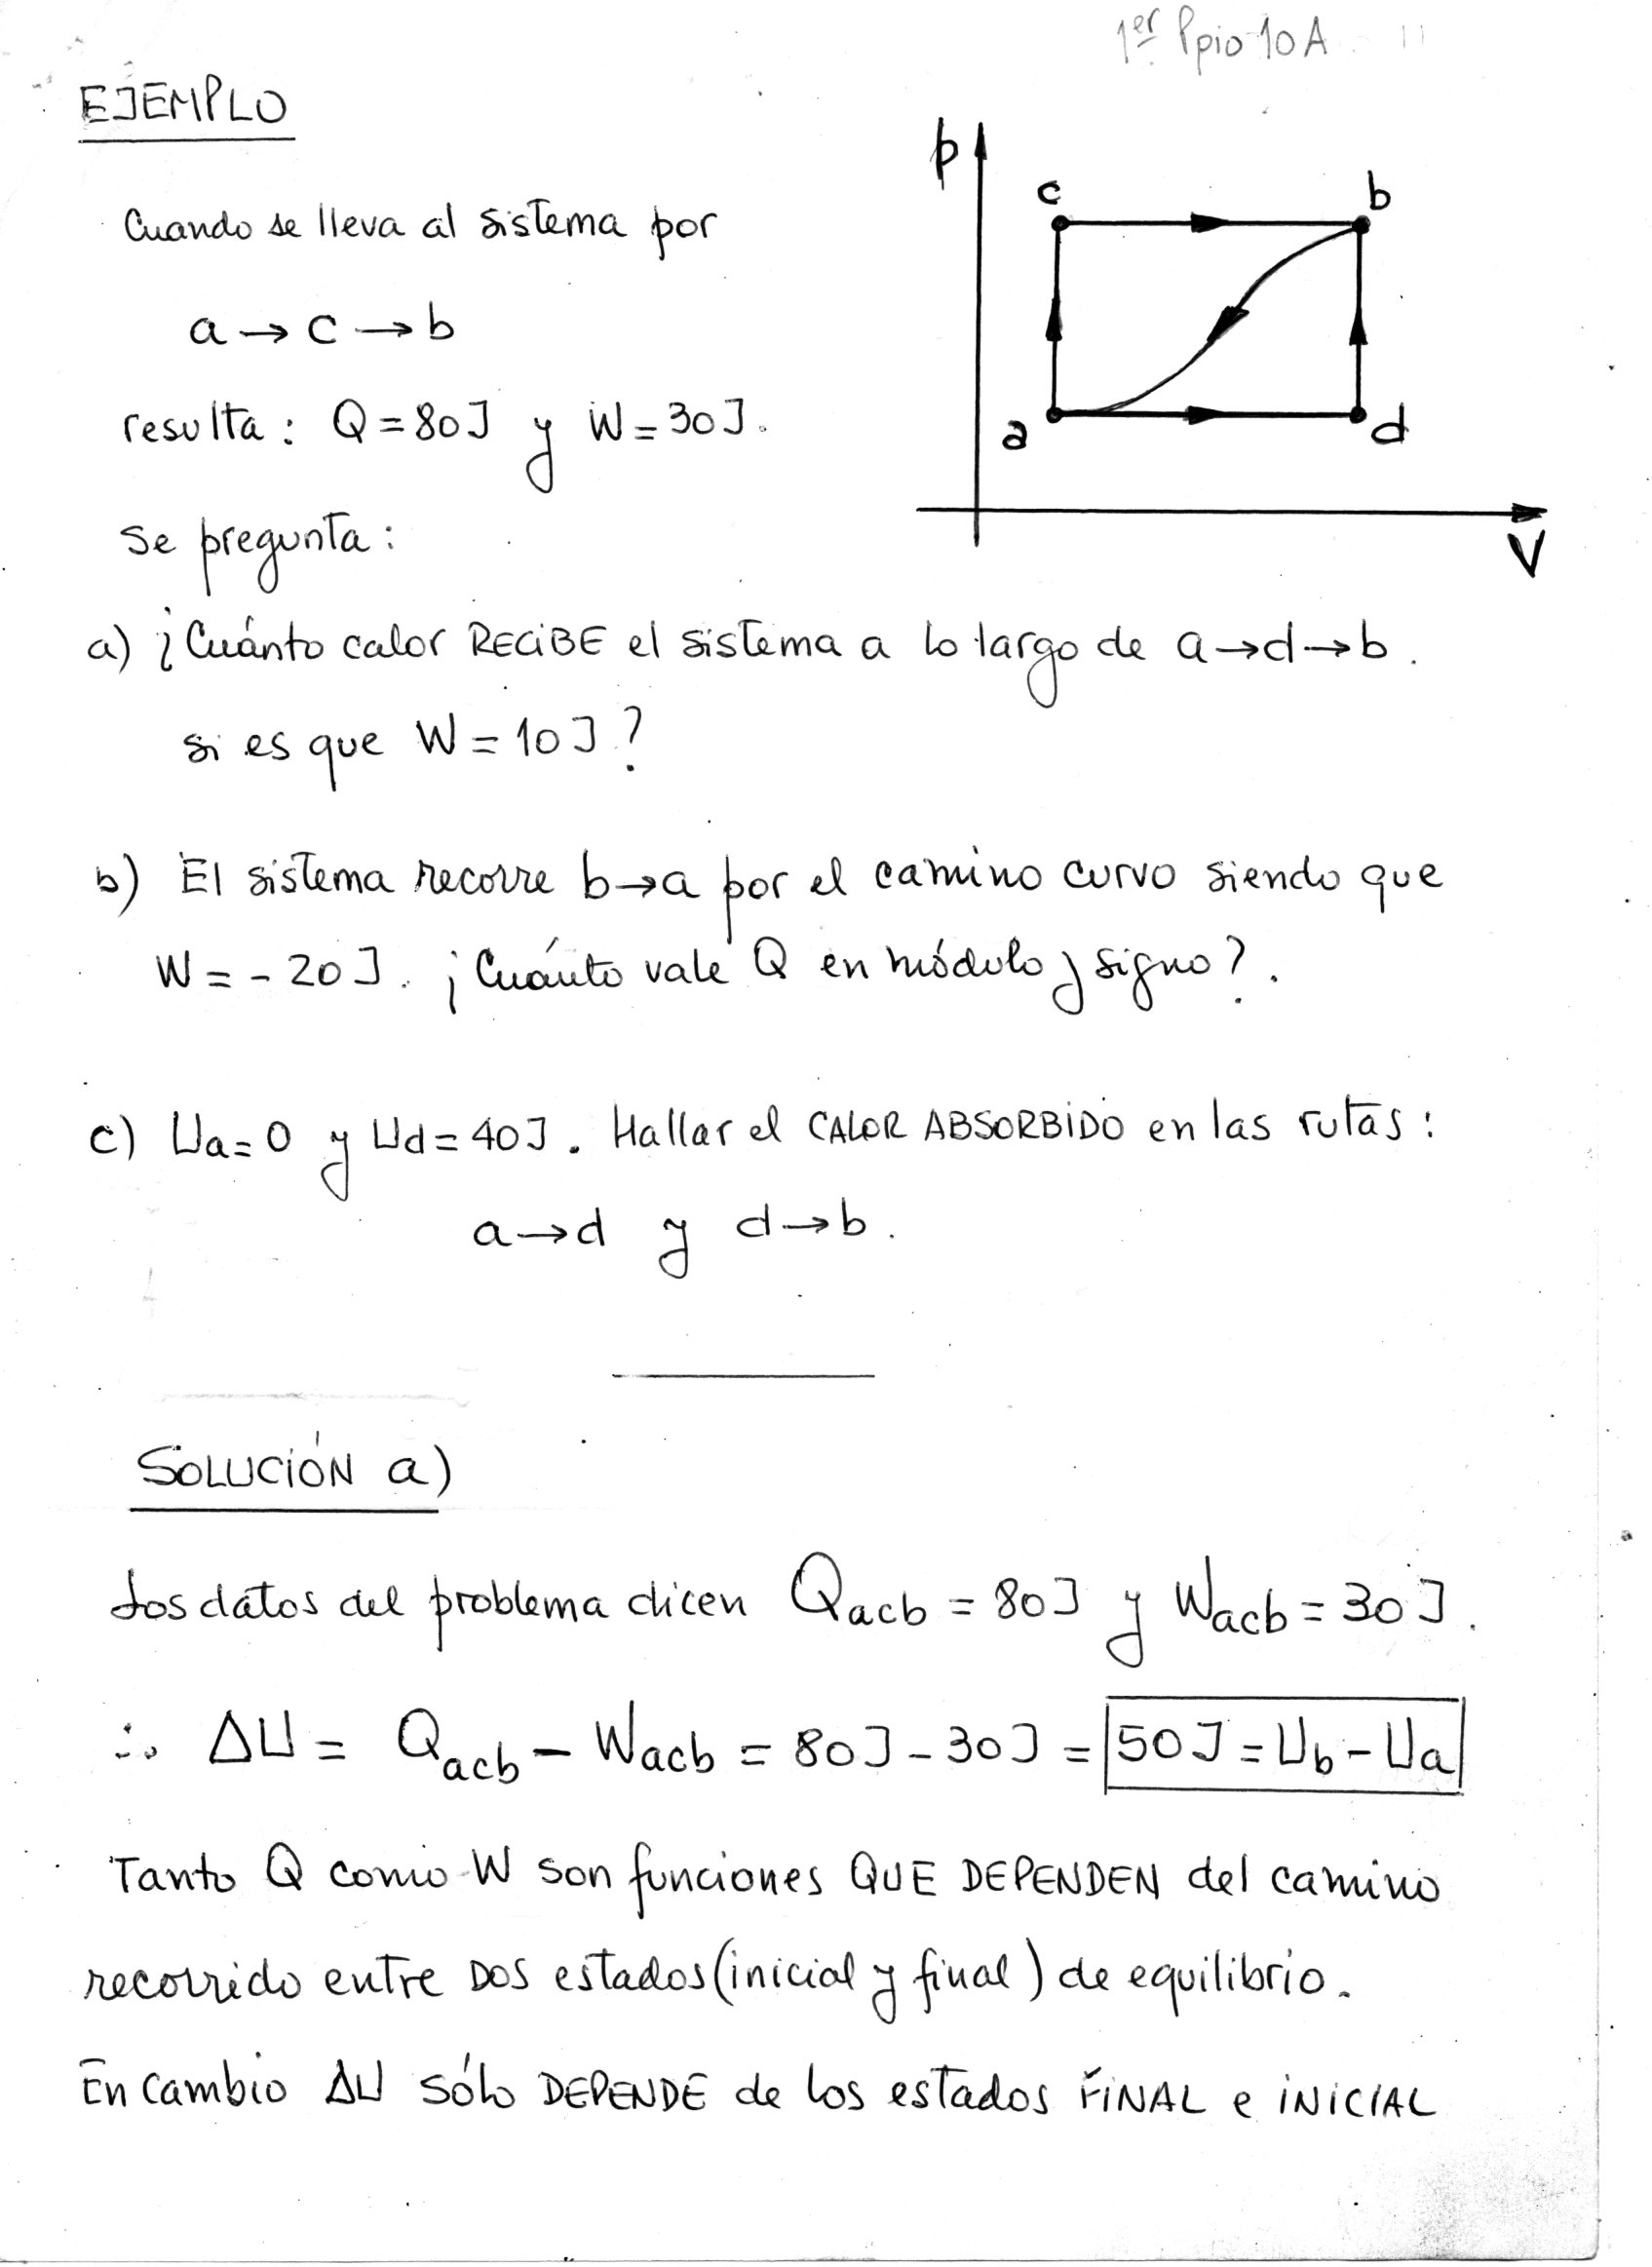 1er Ppio 10A
EJEMPLO
Cuando se lleva al sistema por
a → c → b
resulta: Q = 80J y W = 30J.
Se pregunta:
p
c
b
a
d
V
a) ¿Cuánto calor RECIBE el sistema a lo largo de a → d → b.
si es que W = 10J?
b) El sistema recorre b → a por el camino curvo siendo que
W = - 20J. ¡Cuánto vale Q en módulo y signo?.
c) Ua = 0 y Ud = 40J. Hallar el CALOR ABSORBIDO en las rutas:
a → d y d → b.
SOLUCIÓN a)
Los datos del problema dicen Qacb = 80J y Wacb = 30J.
∴ ΔU = Qacb - Wacb = 80J - 30J = 50J = Ub - Ua
Tanto Q como W son funciones QUE DEPENDEN del camino
recorrido entre DOS estados (inicial y final) de equilibrio.
En cambio ΔU sólo DEPENDE de los estados FINAL e INICIAL